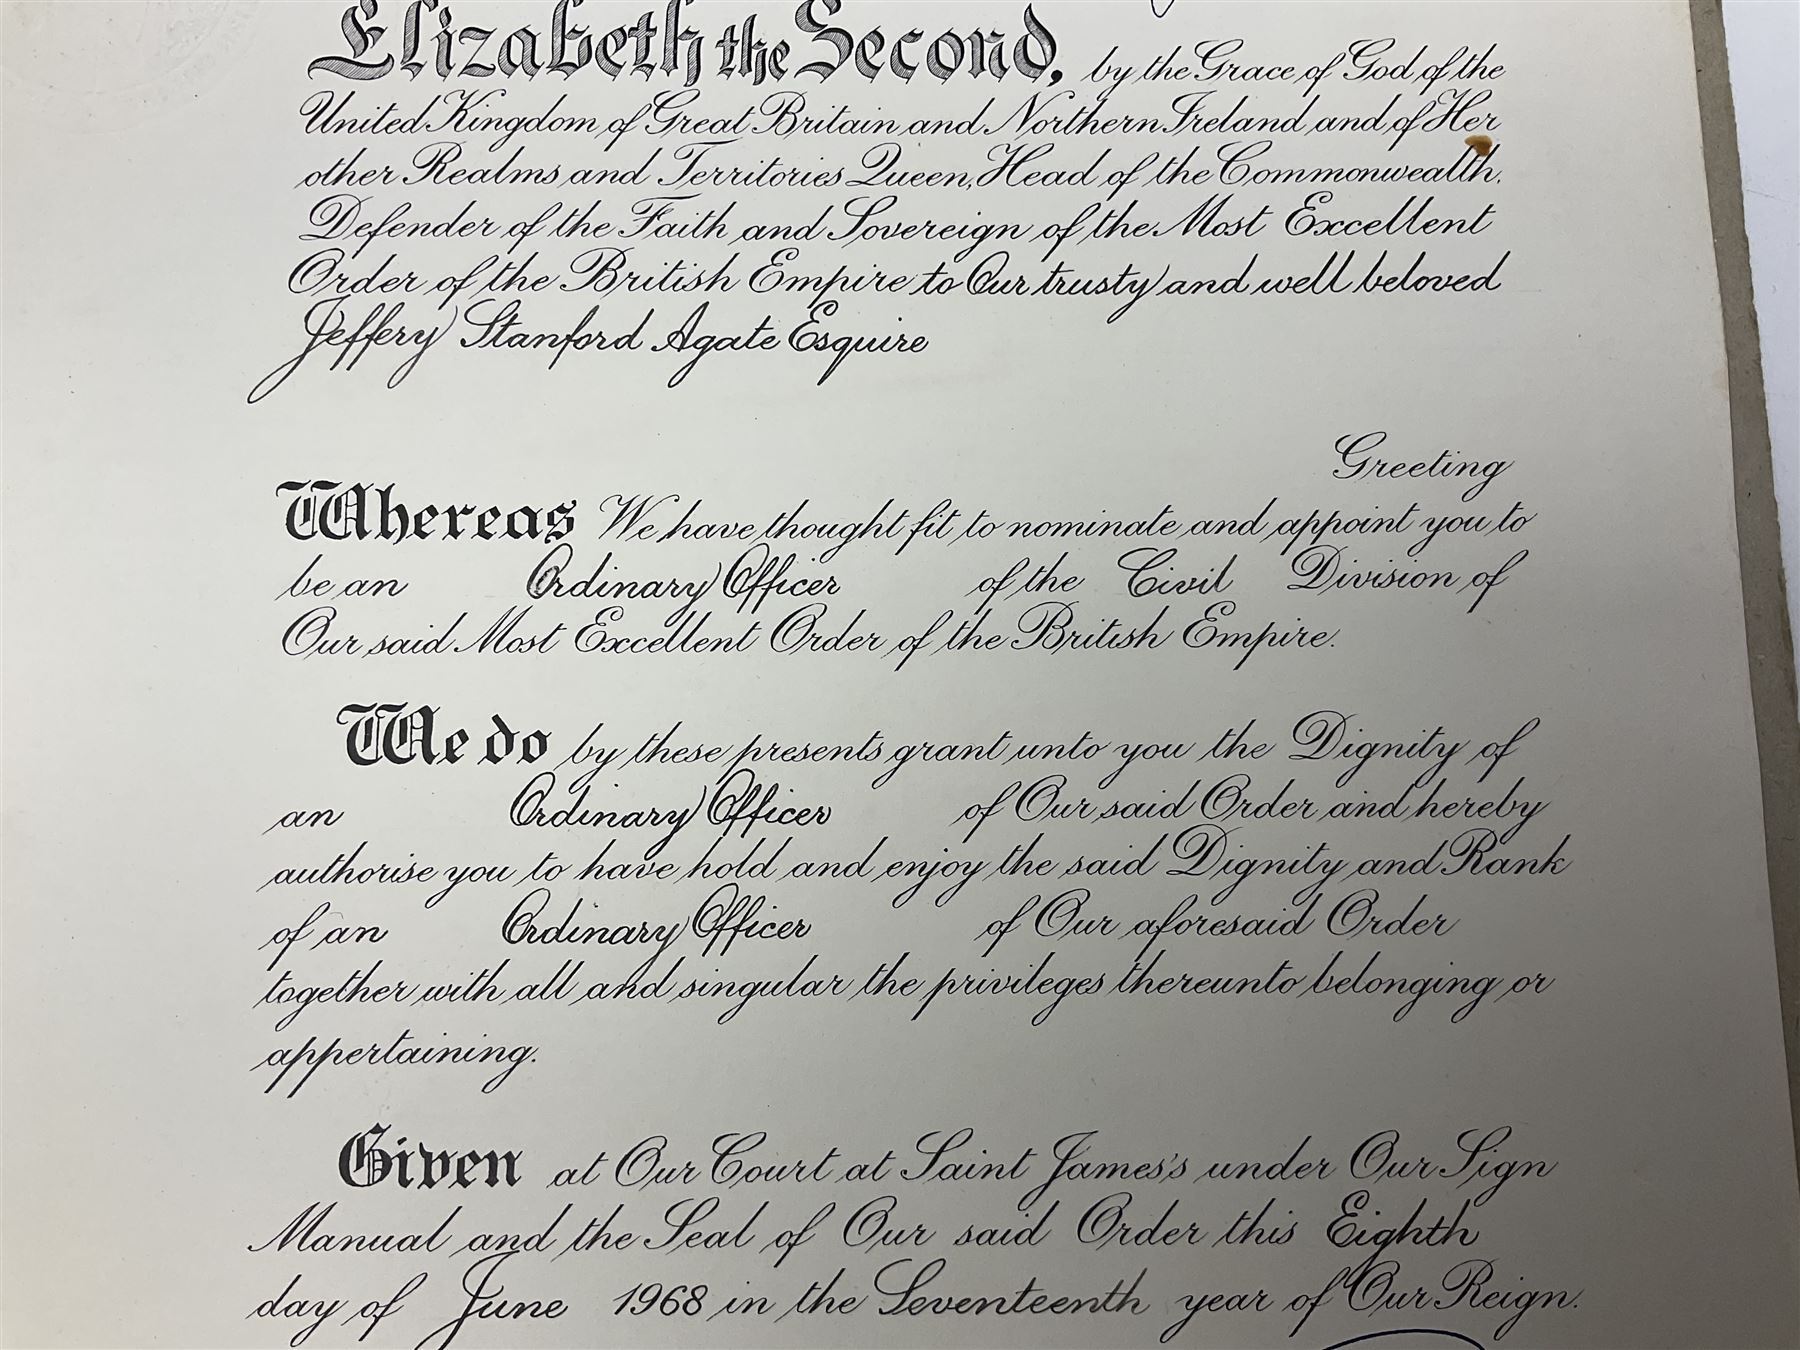 Elizabeth the Second, by the Grace of God of the
United Kingdom of Great Britain and Northern Ireland and of Her
other Realms and Territories Queen, Head of the Commonwealth,
Defender of the Faith and Sovereign of the Most Excellent
Order of the British Empire to Our trusty and well beloved
Jeffery Stanford Agate Esquire
Greeting
Whereas We have thought fit to nominate and appoint you to
be an Ordinary Officer of the Civil Division of
Our said Most Excellent Order of the British Empire.
We do by these presents grant unto you the Dignity of
an Ordinary Officer of Our said Order and hereby
authorise you to have hold and enjoy the said Dignity and Rank
of an Ordinary Officer of Our aforesaid Order
together with all and singular the privileges thereunto belonging or
appertaining.
Given at Our Court at Saint James's under Our Sign
Manual and the Seal of Our said Order this Eighth
day of June 1968 in the Seventeenth year of Our Reign.